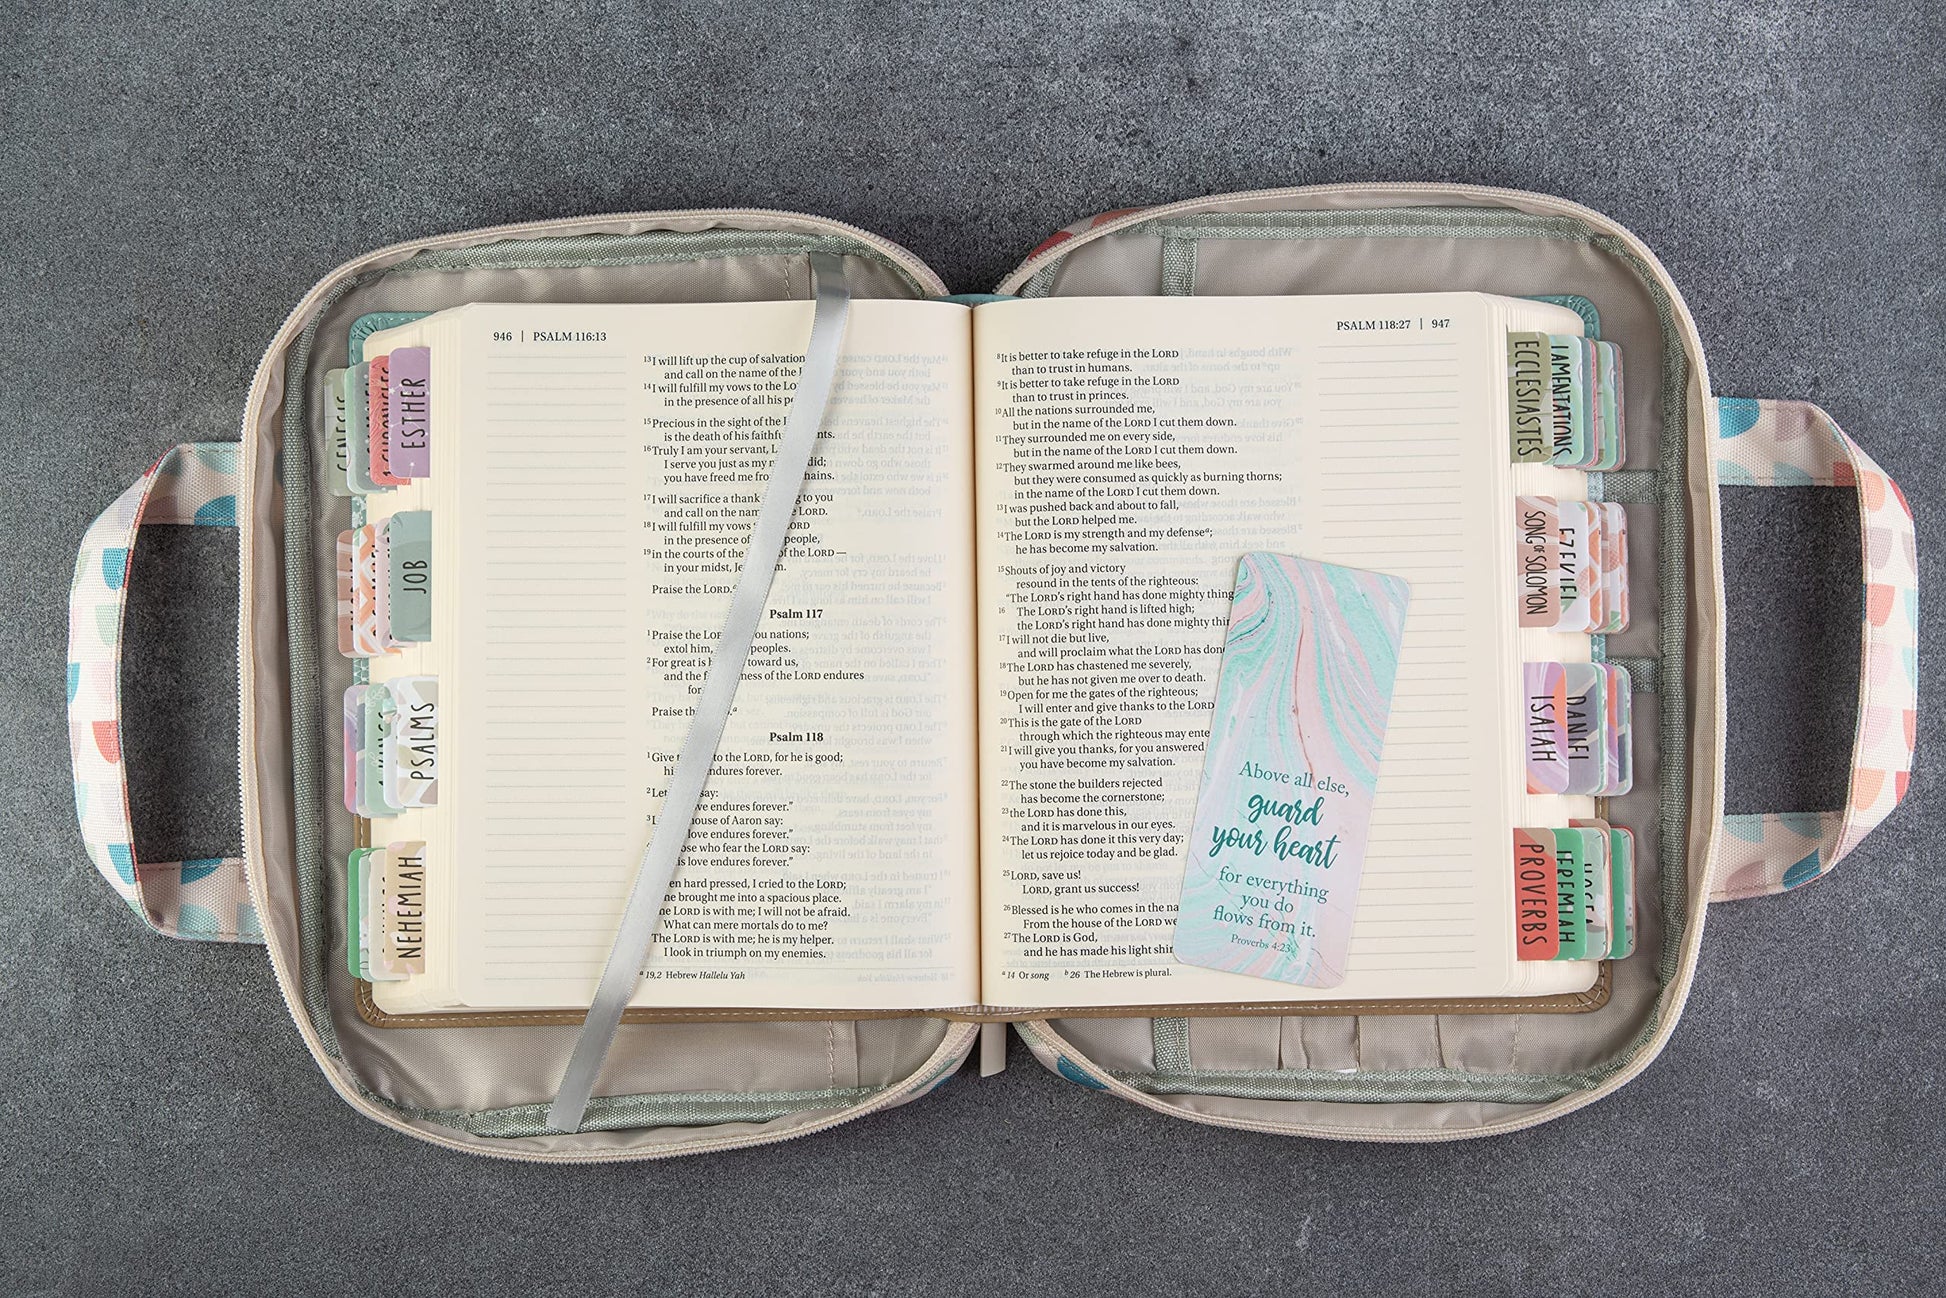 946 | PSALM 116:13
13 I will lift up the cup of salvation
and call on the name of the
14 I will fulfill my vows to the
in the presence of all his
15 Precious in the sight of the
is the death of his
16 Truly I am your servant,
I serve you just as my did;
you have freed me
17 I will sacrifice a thank to you
and call on the LORD.
18 I will fulfill my vows LORD
in the presence of people,
19 in the courts of the of the LORD —
in your midst,
Praise the LORD.
Psalm 117
1 Praise the nations;
extol him, peoples.
2 For great is toward us,
and the of the LORD endures
Praise
Psalm 118
1 Give to the LORD, for he is good;
endures forever.
2 say:
love endures forever.”
3 house of Aaron say:
love endures forever.”
who fear the LORD say:
love endures forever.”
hard pressed, I cried to the LORD;
brought me into a spacious place.
The LORD is with me; I will not be afraid.
What can mere mortals do to me?
The LORD is with me; he is my helper.
I look in triumph on my enemies.
a 19,2 Hebrew Hallelu Yah
PSALM 118:27 | 947
8 It is better to take refuge in the LORD
than to trust in humans.
9 It is better to take refuge in the LORD
than to trust in princes.
10 All the nations surrounded me,
but in the name of the LORD I cut them down.
11 They surrounded me on every side,
but in the name of the LORD I cut them down.
12 They swarmed around me like bees,
but they were consumed as quickly as burning thorns;
in the name of the LORD I cut them down.
13 I was pushed back and about to fall,
but the LORD helped me.
14 The LORD is my strength and my defense a;
he has become my salvation.
15 Shouts of joy and victory
resound in the tents of the righteous:
“The LORD’s right hand has done mighty
16 The LORD’s right hand is lifted high;
the LORD’s right hand has done mighty
17 I will not die but live,
and will proclaim what the LORD has
18 The LORD has chastened me severely,
but he has not given me over to death.
19 Open for me the gates of the righteous;
I will enter and give thanks to the LORD
20 This is the gate of the LORD
through which the righteous may
21 I will give you thanks, for you answered
you have become my salvation.
22 The stone the builders rejected
has become the cornerstone;
23 the LORD has done this,
and it is marvelous in our eyes.
24 The LORD has done it this very day;
let us rejoice today and be glad.
25 LORD, save us!
LORD, grant us success!
26 Blessed is he who comes in the
From the house of the LORD
27 The LORD is God,
and he has made his light
a 14 Or song b 26 The Hebrew is plural.
Above all else,
guard
your heart
for everything
you do
flows from it.
Proverbs 4:23
GENESIS
ESTHER
JOB
PSALMS
NEHEMIAH
ECCLESIASTES
LAMENTATIONS
SONG OF SOLOMON
EZEKIEL
ISAIAH
DANIEL
PROVERBS
JEREMIAH
HOSEA